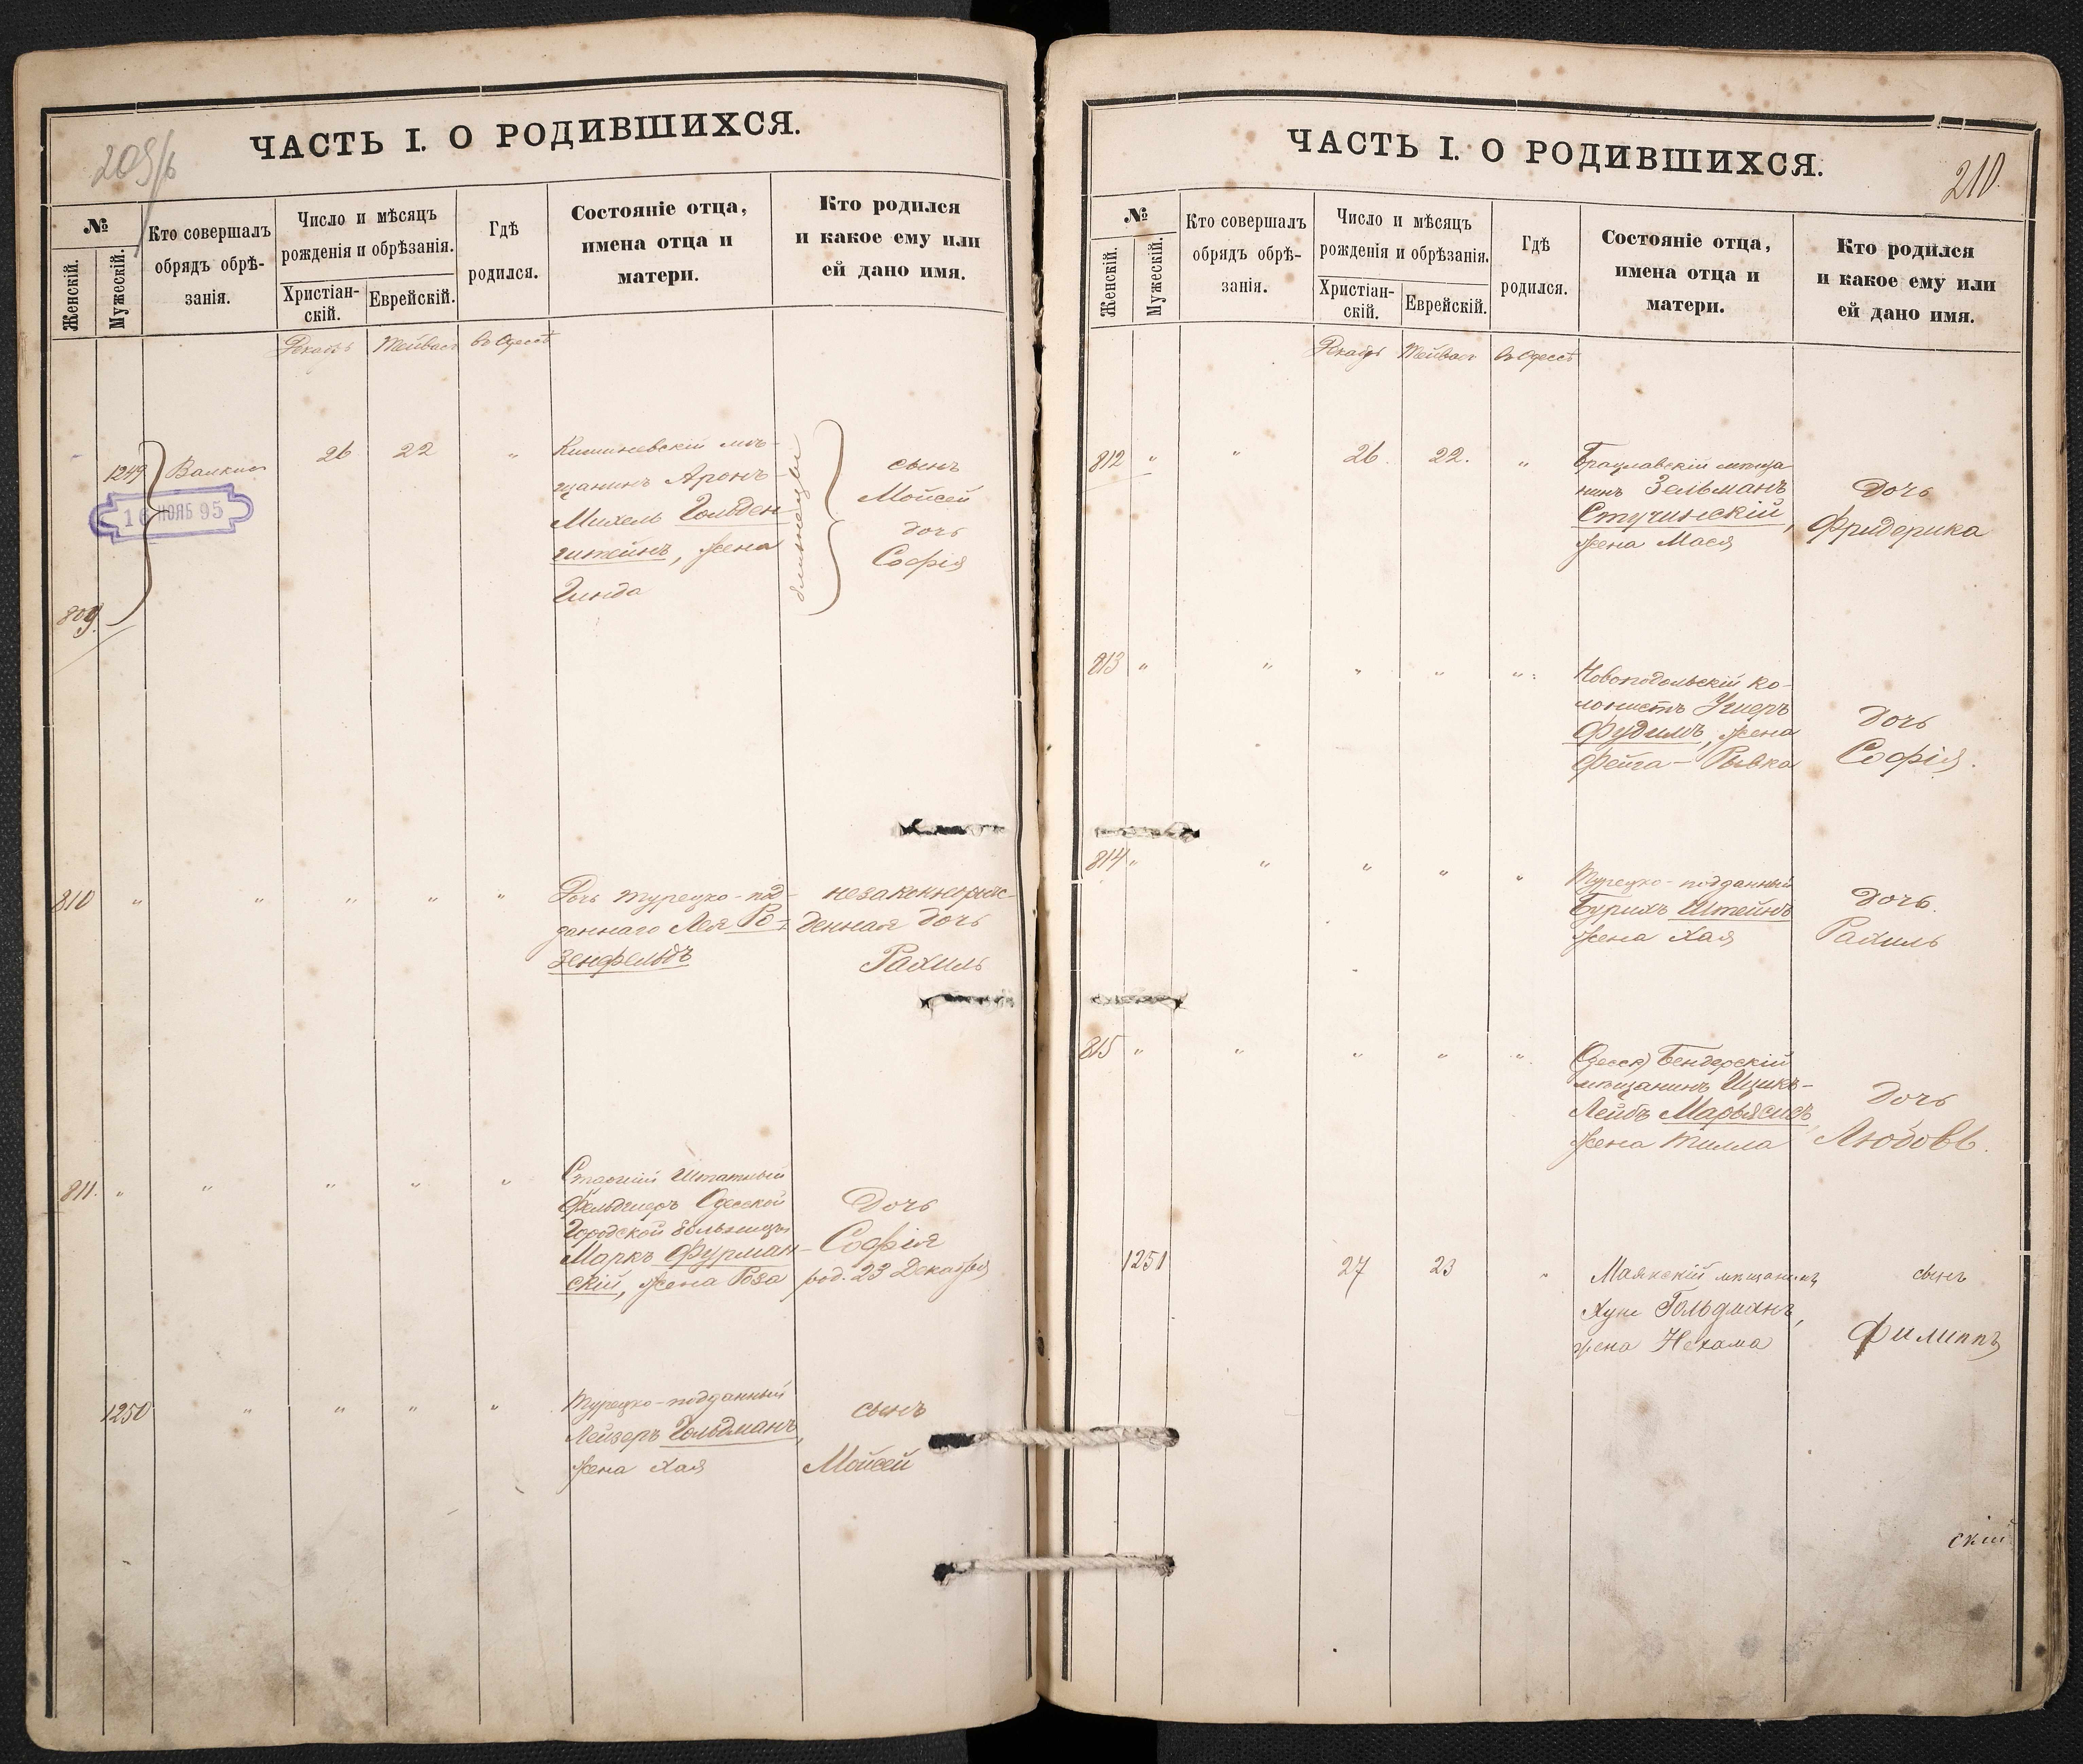 209/b
ЧАСТЬ I. О РОДИВШИХСЯ.
№
Женскій.
Мужескій.
Кто совершалъ
обрядъ обрѣ-
занія.
Число и мѣсяцъ
рожденія и обрѣзанія.
Христіан-
скій.
Еврейскій.
Гдѣ
родился.
Состояніе отца,
имена отца и
матери.
Кто родился
и какое ему или
ей дано имя.
Декабрь Тейвасъ въ Одессѣ
1249
809.
16 НОЯБ 95
26 22 "
Кишиневскій мѣ-
щанинъ Аронъ-
Михель Гольден-
штейнъ, жена
Гинда
близнецы
сынъ
Мойсей
дочь
Софія
810 " " " " "
Дочь турецко-под-
даннаго Лея Ро-
зенфельдъ
незаконнорож-
денная дочь
Рахиль
811. " " " " "
Старшій Штатный
Фельдшеръ Одесской
Городской больницы
Маркъ Фурман-
скій, жена Роза
Дочь
Софія
род. 23 Декабря
1250 " " " "
Турецко-подданный
Лейзеръ Гольдманъ,
жена Хая
сынъ
Мойсей
210.
ЧАСТЬ I. О РОДИВШИХСЯ.
№
Женскій.
Мужескій.
Кто совершалъ
обрядъ обрѣ-
занія.
Число и мѣсяцъ
рожденія и обрѣзанія.
Христіан-
скій.
Еврейскій.
Гдѣ
родился.
Состояніе отца,
имена отца и
матери.
Кто родился
и какое ему или
ей дано имя.
Декабрь Тейвасъ въ Одессѣ
812 " " 26. 22. "
Брацлавскій мѣща-
нинъ Зельманъ
Стучинскій,
жена Мася
Дочь
Фридерика
813 " " " " "
Новоподольскій ко-
лонистъ Ушеръ
Фудимъ, жена
Фейга-Рывка
Дочь
Софія.
814 " " " " "
Турецко-подданный
Бурихъ Штейнъ
жена Хая
Дочь.
Рахиль
815 " " " " "
Бендерскій
мѣщанинъ Ицикъ-
Лейбъ
жена Тилла
Дочь
Любовь.
1251 27 23 "
Маякскій мѣщанинъ
Гольдманъ,
жена Нехама
сынъ
Филиппъ
скій